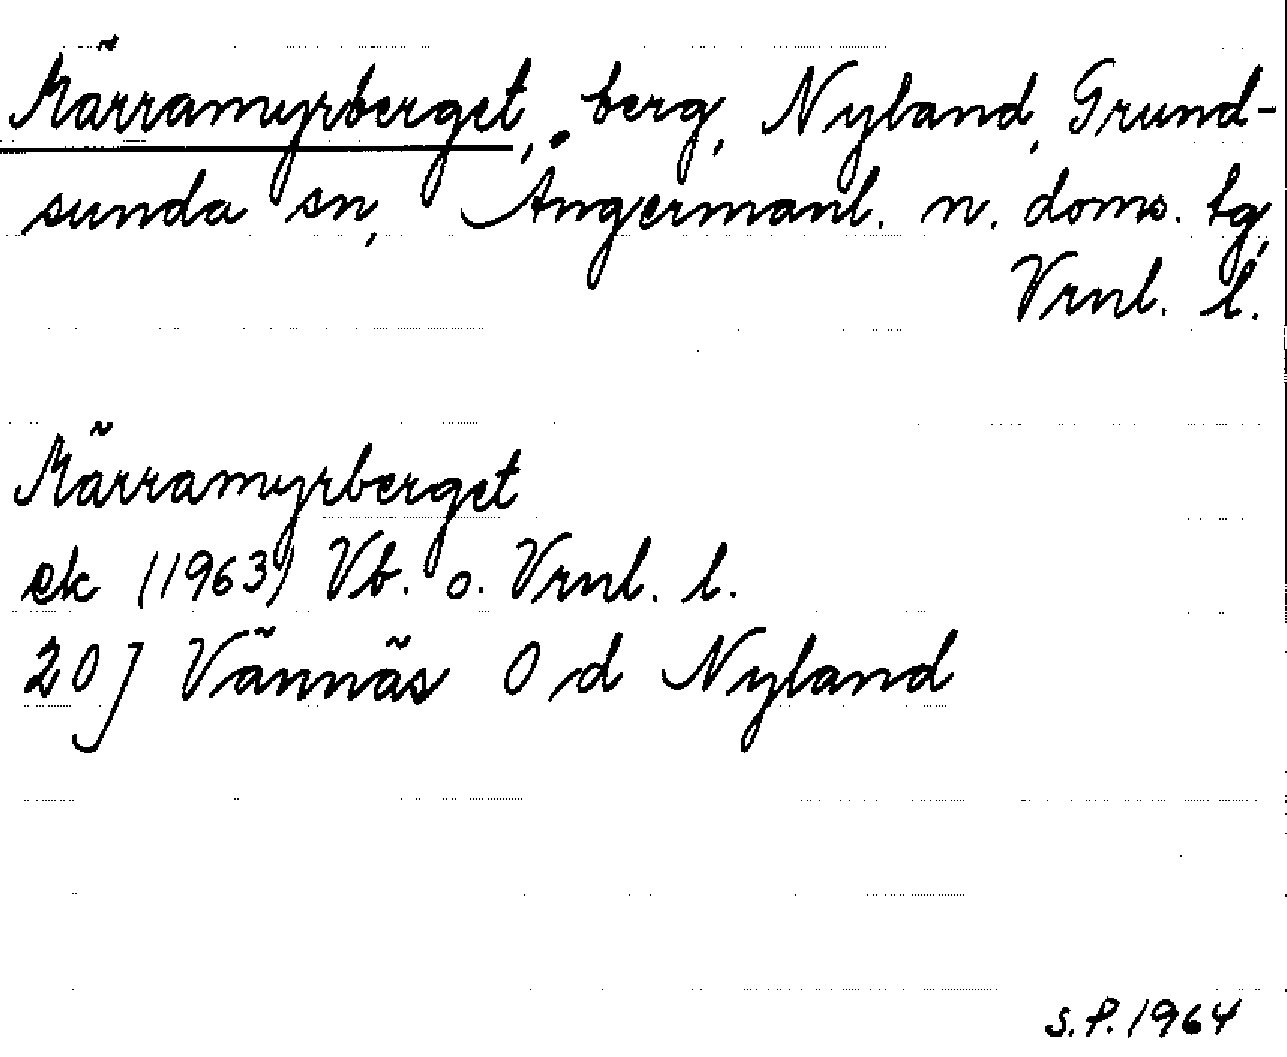 Märramyrberget, berg, Nyland, Grund-
sunda sn, Ångermanl. n. doms. tg,
Vrnl. l.
Märramyrberget
ek (1963) Vb. o. Vrnl. l.
20 J Vännäs 0 d Nyland
S.P. 1964